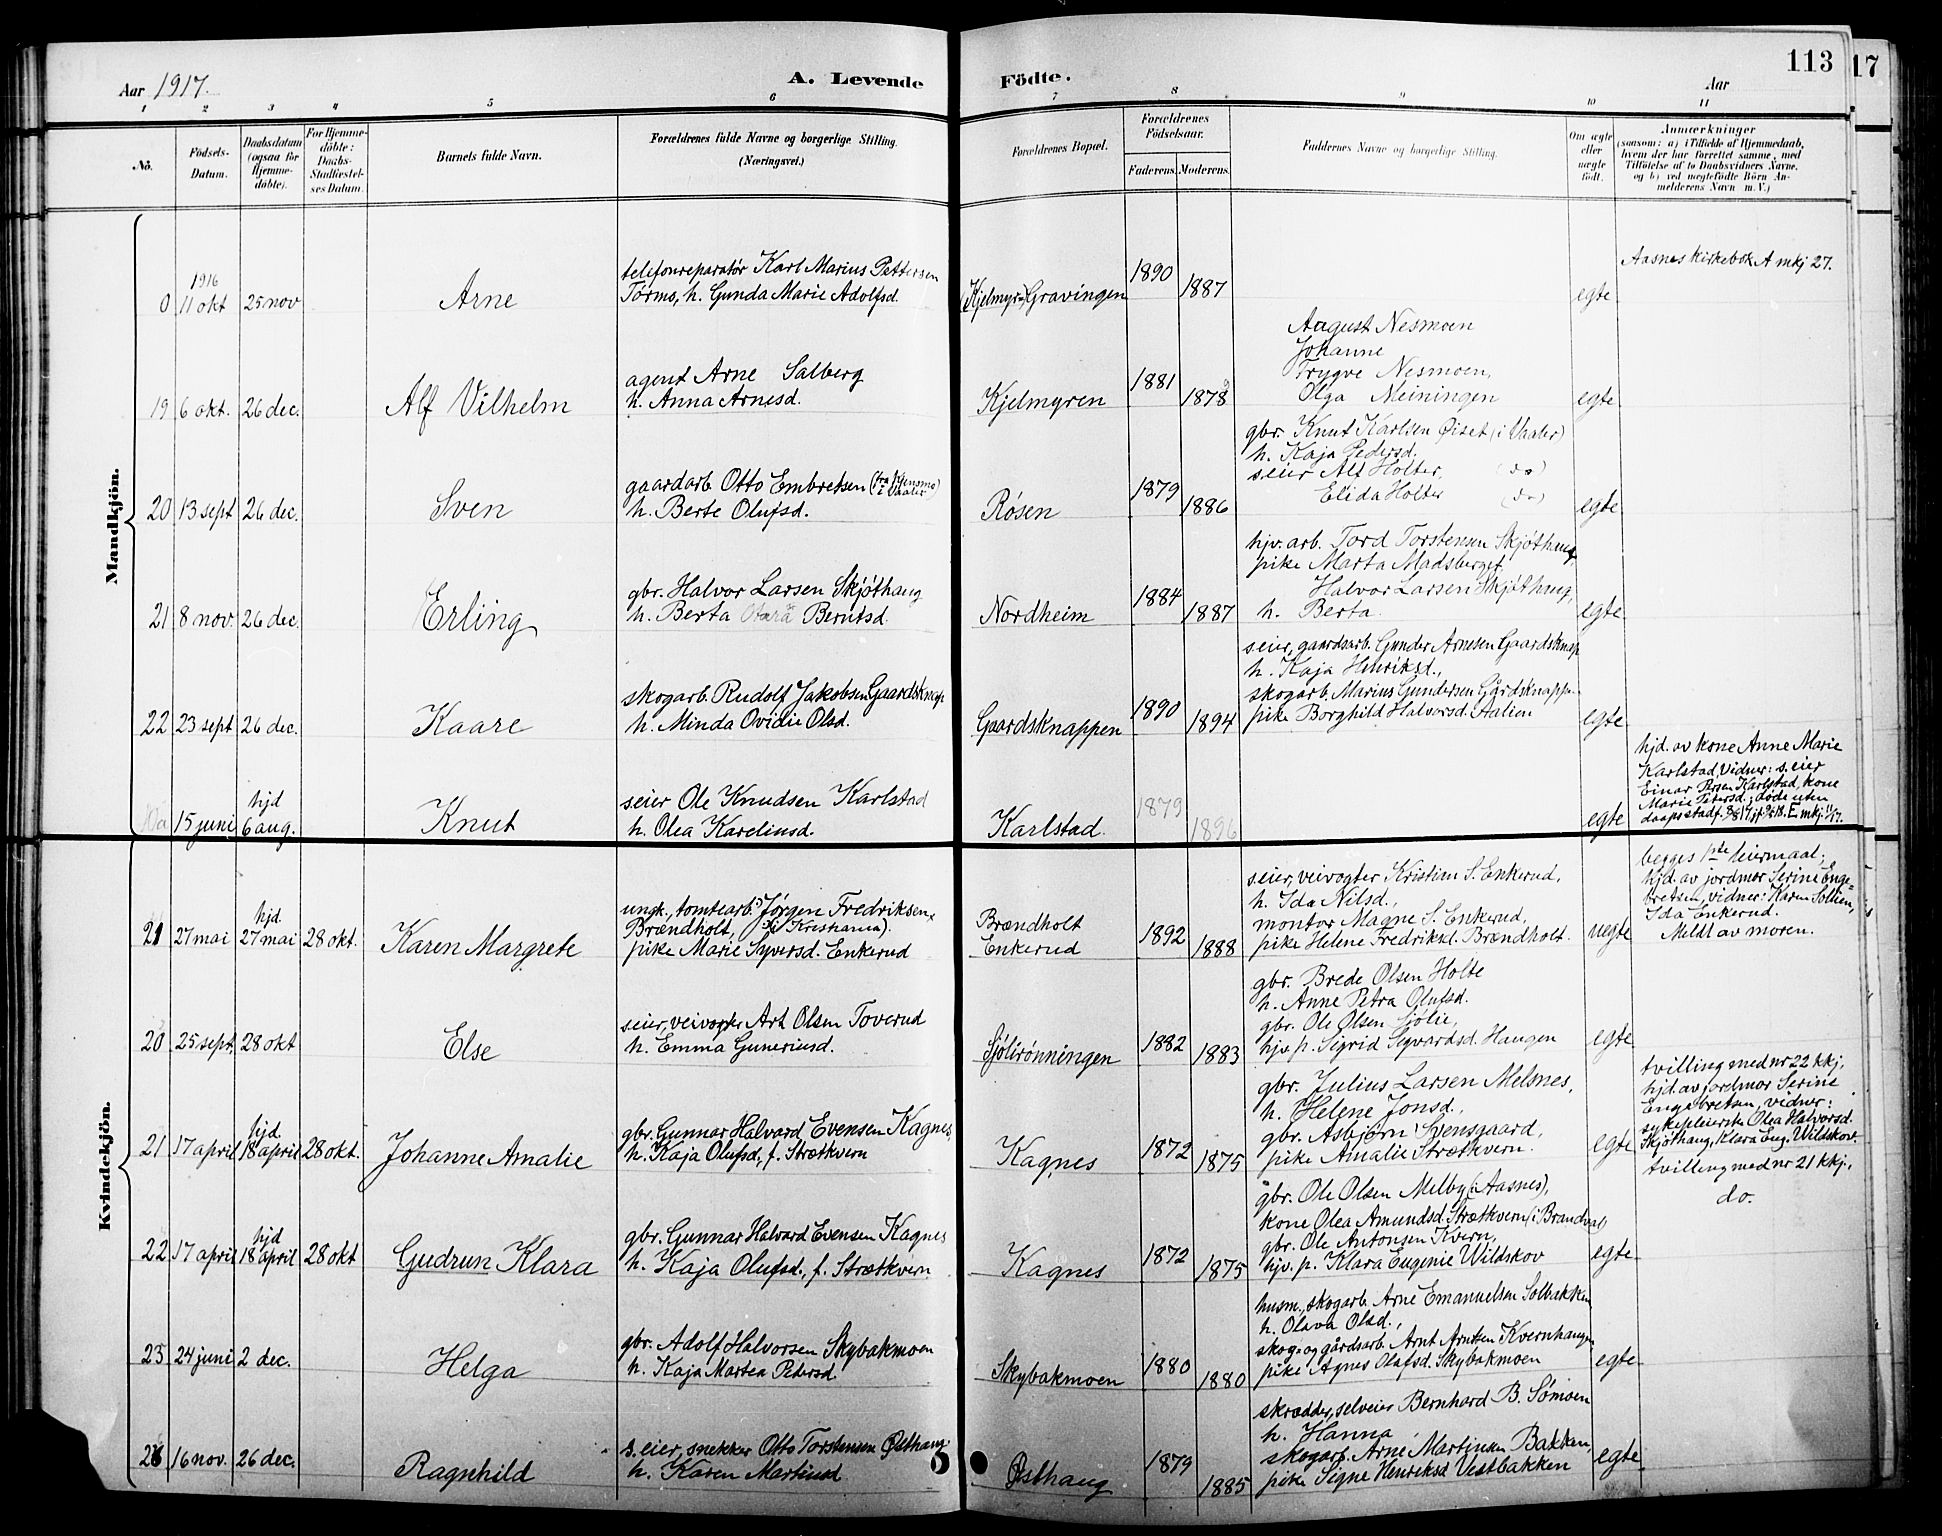 113
17
Aar 1917.
A. Levende
Födte.
Aar
1 2 3 4 5 6 7 8 9 10 11
No.
Födsels-
Datum.
Daabsdatum
(ogsaa for
Hjemme-
döbte).
For Hjemme-
döbte:
Daabs-
Stadfæstel-
ses Datum.
Barnets fulde Navn.
Forældrenes fulde Navne og borgerlige Stilling.
(Næringsvei.)
Forældrenes Bopæl.
Forældrenes
Födselsaar.
Faderens.
Moderens.
Faddernes Navne og borgerlige Stilling.
Om ægte
eller
uægte
födt.
Anmærkninger
(saasom: a) i Tilfælde af Hjemmedaab,
hvem der har forrettet samme, med
Tilföielse af to Daabsvidners Navne,
og b) ved uægtefödte Börn An-
melderens Navn m. V.)
Mandkjön.
1916
0 11 okt 25 nov
Arne
telefonreparatör Karl Marius Pettersen
Tormo, h. Gunda Marie Adolfsd.
(Kjelmyr) Gravingen
1890
1887
egte
Aasnes kirkebok A mkj 27.
19 6 okt. 26 dec.
Alf Vilhelm
agent Arne Salberg
h. Anna Arnesd.
Kjelmyren
1881
1878
August Nesmoen
Johanne
Trygve Nesmoen,
Olga Meiningen
egte
20 13 sept 26 dec.
Sven
gaardarb. Otto Embretsen
h. Berte Olufsd.
Røsen
1879
1886
gbr. Knut Karlsen Øiset (i Vaaler)
h. Kaja Pedersd.
seier Alf Holter, (do)
Elida Holter (do)
egte
21 8 nov. 26 dec.
Erling
gbr. Halvor Larsen Skjøthaug
h. Berta Berntsd.
Nordheim
1884
1887
hjv. arb. Tord Torstensen Skjøthaug,
pike Marta Madsberget,
Halvor Larsen Skjøthaug,
h. Berta.
egte
22 23 sept 26 dec.
Kaare
skogarb. Rudolf Jakobsen Gaardsknap
h. Minda Ovidie Olsd.
Gaardsknappen
1890
1894
seier, gaardsarb. Gunder Arnesen Gaardsknap
h. Kaja Henriksd.,
skogarb. Marius Gundersen Gårdsknapp.
pike Borghild Halvorsd. Aalien
egte
15 juni hjd 6 aug.
Knut
seier Ole Knudsen Karlstad
h. Olea Kareliusd.
Karlstad.
1879
1896
egte
hjd. av kone Anne Marie
Karlstad, Vidner: s. eier
Einar Persen Karlstad, kone
Marie Petersd.; døde uten
daapsstadf.
Kvindekjön.
21 27 mai hjd 27 mai 28 okt.
Karen Margrete
ungk., tomtearb. Jørgen Fredriksen
Brændholt, (i Kristiania).
pike Marie Syversd. Enkerud
Brændholt
Enkerud
1892
1888
seier, veivogter Kristian S. Enkerud,
h. Ida Nilsd.,
montør Magne S. Enkerud,
pike Helene Fredriksd. Brændholt.
uegte
begges 1ste leiermaal;
hjd. av jordmor Serine Enge-
bretsen, vidner: Karen Sollien,
Ida Enkerud.
Meldt av moren.
20 25 sept. 28 okt
Else
seier, veivogter Art Olsen Toverud
h. Emma Guneriusd.
Sjölirönningen
1882
1883
gbr. Brede Olsen Holte
h. Anne Petra Olufsd.
gbr. Ole Olsen Sjølie,
hjv. p. Sigrid Sigvardsd. Haugen
egte
21 17 april hjd. 18 april 28 okt.
Johanne Amalie
gbr. Gunnar Halvard Evensen Kagnes,
h. Kaja Olufsd., f. Strætkvern
Kagnes
1872
1875
gbr. Julius Larsen Melsnes,
h. Helene Jonsd.,
gbr. Asbjørn Svensgaard,
pike Amalie Strætkvern.
egte
tvilling med nr 22 kkj.
hjd. av jordmor Serine
Engebretsen, vidner:
sykepleierske Olea Halvorsd.
Skjøthaug, Klara Eug. Wildskov
22 17 april hjd 18 april 28 okt
Gudrun Klara
gbr. Gunnar Halvard Evensen Kagnes
h. Kaja Olufsd., f. Strætkvern
Kagnes
1872
1875
gbr. Ole Olsen Melby (i Aasnes),
kone Olea Amundsd. Strætkvern (i Brandval)
gbr. Ole Antonsen Kvern,
hjv. p. Klara Eugenie Wildskov
egte
tvilling med nr 21 kkj.
do.
23 24 juni 2 dec.
Helga
gbr. Adolf Halvorsen Skybakmoen
h. Kaja Martea Pedersd.
Skybakmoen
1880
1880
husm., skogarb. Arne Emanuelsen Solbakken
h. Olava Olsd.,
skog- og gårdsarb. Arnt Arntsen Kvernhaugen
pike Agnes Olafsd. Skybakmoen
egte
16 nov. 26 dec.
Ragnhild
s. eier, snekker Otto Torstensen Østhaug
h. Karen Martinsd
Østhaug
1879
1885
skrædder, selveier Bernhard B. Sömoen
h. Hanna,
skogarb. Arne Martinsen Bakken,
pike Signe Henriksd Vestbakken
egte